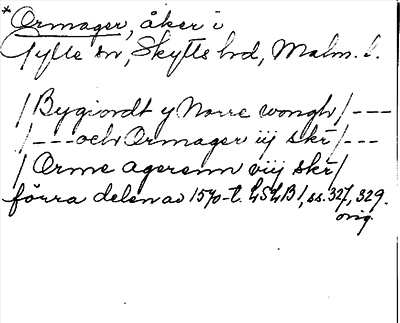 *Ormager, åker i
Gylle sn, Skytts hd, Malm. l.
/Bygiordt y Norre wongh/---
/---och Ormager iij skr̄/---
/Orme agerenn viij skr̄/
förra delen av 1570-t. LSLB 1, ss. 327, 329.
orig.